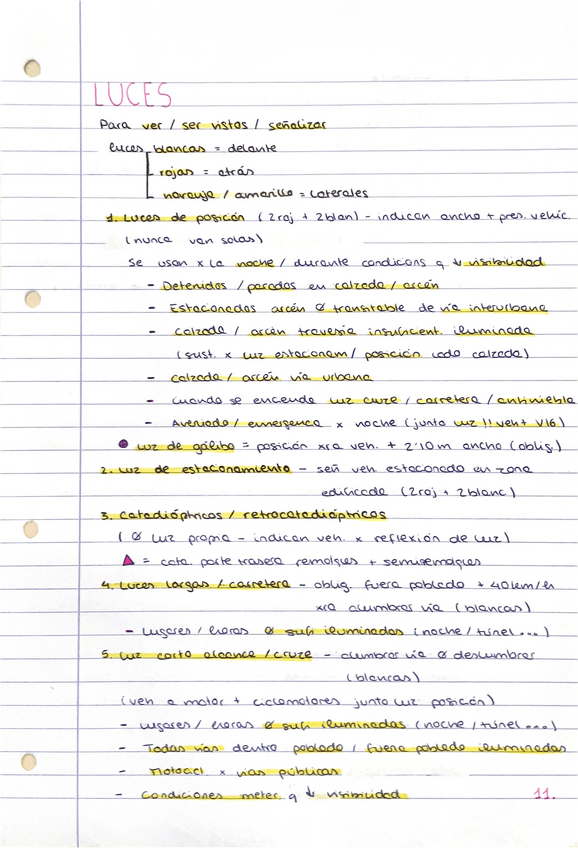 LUCES
Para ver / ser vistos / señalizar
luces blancas = delante
rojas = atrás
naranja / amarillo = laterales
1. Luces de posición (2roj + 2blan) - indican ancho + pres. vehic.
(nunca van solas)
Se usan x la noche / durante condicions q ↓ visibilidad
- Detenidos / parados en calzada / arcén
- Estacionados arcén Ø transitable de vía interurbana
- calzada / arcén travesía insuficient. iluminada
(sust. x luz estacionam / posición lado calzada)
- calzada / arcén vía urbana
- cuando se encienda luz cruze / carretera / antiniebla
- Averiado / emergencia x noche (junto luz !! veh + V16)
● luz de gálibo = posición xra veh. + 2'10 m ancho (oblig.)
2. luz de estacionamiento - señ veh estacionado en zona
edificada (2roj + 2blanc)
3. catadióptricos / retrocatadióptricos
(Ø luz propia - indican veh. x reflexión de luz)
▲ = cata. parte trasera remolques + semiremolques
4. Luces largas / carretera - oblig. fuera poblado + 40km/h
xra alumbrar vía (blancas)
- lugares / horas Ø sufi iluminadas (noche / túnel...)
5. luz corto alcance / cruze - alumbrar vía Ø deslumbrar
(blancas)
(veh a motor + ciclomotores junto luz posición)
- lugares / horas Ø sufi iluminadas (noche / túnel...)
- Todas vías dentro poblado / fuera poblado iluminadas
- Motocicl x vías públicas
- Condiciones meter. q ↓ visibilidad
11.